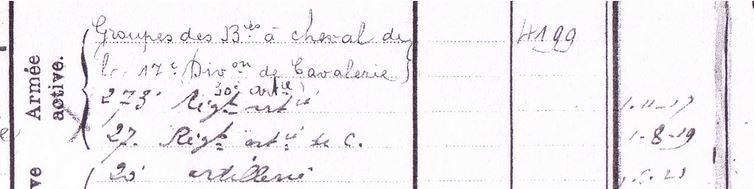 Armée active.
Groupes des B^ies à cheval de 4199
la 17^e Div^on de Cavalerie
(30^e art^ie)
273^e Rég^t art^ie 1-11-17
27^e Rég^t art^ie de C. 1-8-19
20^e artillerie
ve